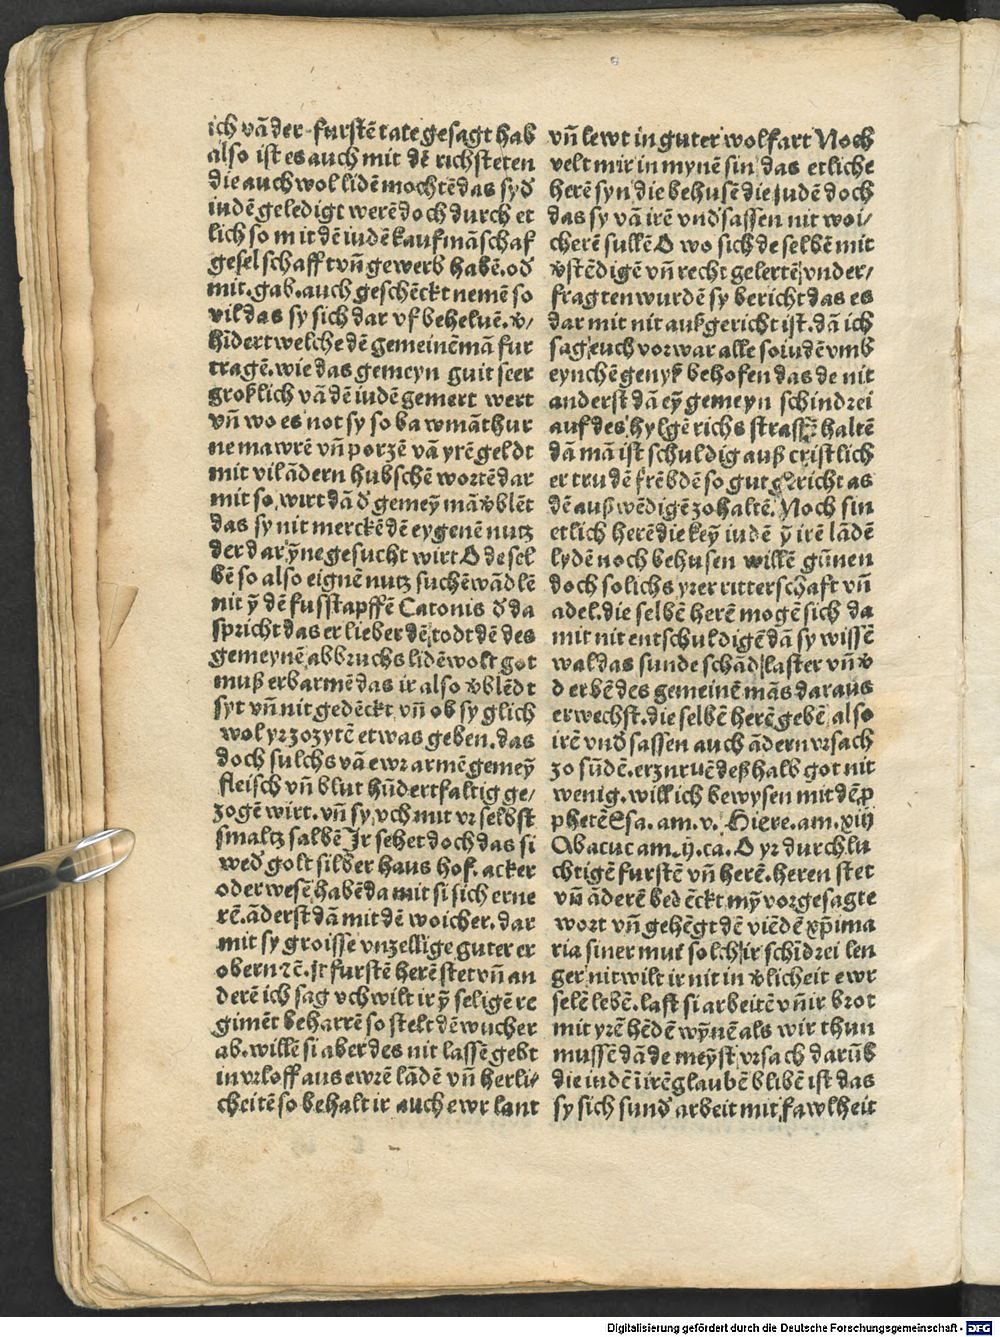 ich vā der furstē rate gesagt hab
also ist es auch mit dē richsteten
die auch wol lidē mochtē das syd̄
iudē geledigt werē doch durch et
lich so mit dē iudē kaufmāschaf
geselschafft vn̄ gewerb habē. od̄
mit. gab. auch geschēckt nemē so
vil das sy sich dar vf behelvē. v̄/
hīdert welche dē gemeinē mā fur
tragē. wie das gemeyn guit seer
großlich vā dē iudē gemert wert
vn̄ wo es not sy so bawmā thur
ne mawrē vn̄ porzē vā yrē geldt
mit vil ādern hubschē wortē dar
mit so wirt dā d̄ gemeȳ mā v̄blēt
das sy nit merckē dē eygenē nutz
der dar ȳne gesucht wirt O de sel
bē so also eignē nutz suchē wādlē
nit ȳ dē fusstapffē Catonis d̄ da
spricht das er lieber dē todt dē des
gemeynē abbruchs lidē wolt got
muß erbarmē das ir also v̄blēdt
syt vn̄ nit gedēckt vn̄ ob sy glich
wol yrzozytē etwas geben. das
doch sulchs vā ewr armē gemeȳ
fleisch vn̄ blut hūdertfaltig ge/
zogē wirt. vn̄ sy vch mit vr selbst
smaltz salbē Ir sehet doch das si
wed̄ golt silber haus hof. acker
oder wesē habē da mit si sich erne
rē. āderst dā mit dē woicher. dar
mit sy groisse vnzellige guter er
obern ꝛc̄. Ir furstē herē stet vn̄ an
derē ich sag vch wilt ir ȳ seligē re
gimēt beharrē so stelt dē wucher
ab. willē si aber des nit lassē gebt
in vrloff aus ewrē lādē vn̄ herli/
cheitē so behalt ir auch ewr lant
vn̄ lewt in guter wolfart Noch
velt mir in mynē sin das etliche
herē syn die behusē die iudē doch
das sy vā irē vnd̄sassen nit woi/
cherē sullē O wo sich de selbē mit
v̄stēdigē vn̄ recht gelertē vnder/
fragten wurdē sy bericht das es
dar mit nit außgericht ist. dā ich
sag euch vorwar alle so iudē vmb
eynchē genyß behofen das de nit
anderst dā eȳ gemeyn schindrei
auf des hylgē richs strassē haltē
dā mā ist schuldig auß cristlich
er tru dē frēbdē so gut gericht as
dē außwēdigē zo haltē. Noch sin
etlich herē die keȳ iudē ȳ irē lādē
lydē noch behusen willē gūnen
doch solichs yrer ritterschaft vn̄
adel. die selbē herē mogē sich da
mit nit entschuldigē dā sy wissē
wal das sunde schād laster vn̄ v̄
derbē des gemeinē mās daraus
erwechst. die selbē herē gebē also
irē vnd̄sassen auch ādern vrsach
zo sūdē. erznruē deßhalb got nit
wenig. will ich bewysen mit dē ꝓ
phetē Esa. am. v. Hiere. am. xiij
Abacuc am. ij. ca. O yr durchlu
chtigē furstē vn̄ herē. heren stet
vn̄ āderē bedēckt mȳ vorgesagte
wort vn̄ gehēgt dē viēdē xp̄i ma
ria siner mut solch ir schīdrei len
ger nit wilt ir nit in v̄licheit ewr
selē lebē. last si arbeitē vn̄ ir brot
mit yrē hēdē wȳnē als wir thun
mussē dā de meyst vrsach darūb
die iudē ī irē glaubē blibē ist das
sy sich sund̄ arbeit mit fawlheit
Digitalisierung gefördert durch die Deutsche Forschungsgemeinschaft - DFG